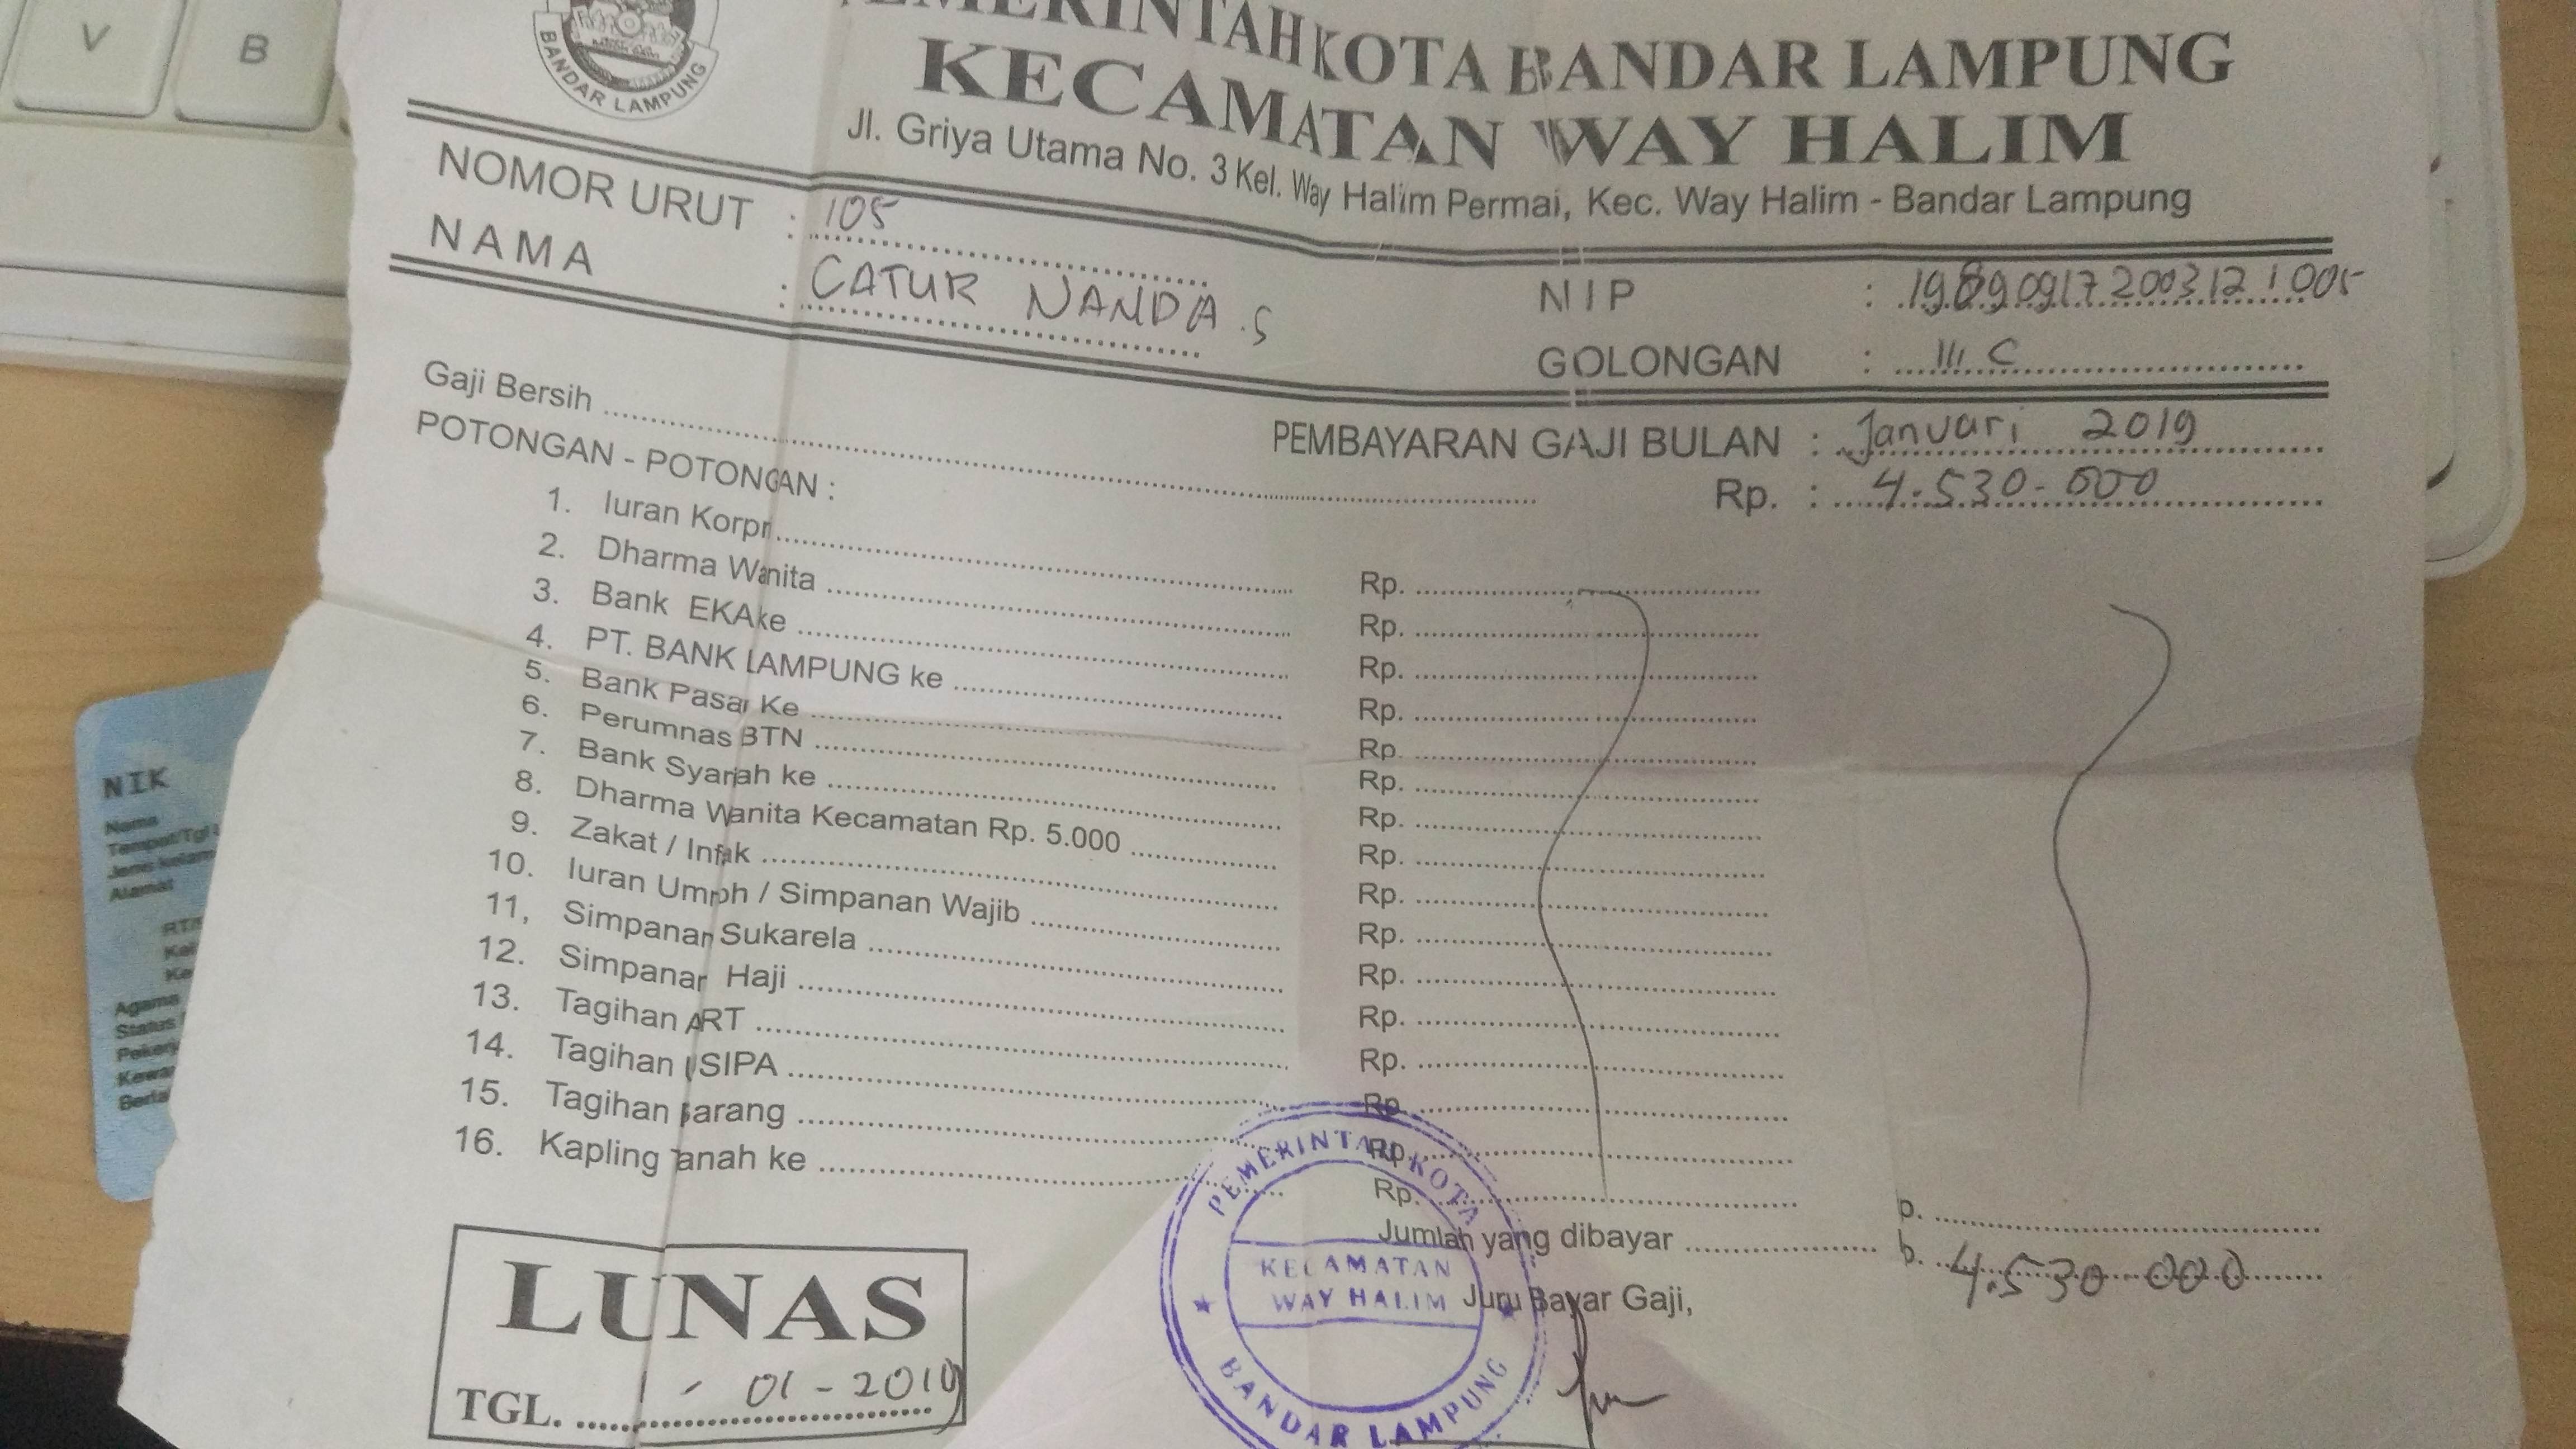 V
B
BANDAR LAMPUNG
PEMERINTAH KOTA BANDAR LAMPUNG
KECAMATAN WAY HALIM
Jl. Griya Utama No. 3 Kel. Way Halim Permai, Kec. Way Halim - Bandar Lampung
NOMOR URUT : 105
NAMA : CATUR NANDA .S
NIP : 19890917 200312 1 005
GOLONGAN : III C
PEMBAYARAN GAJI BULAN : Januari 2019
Gaji Bersih Rp. : 4.530.000
POTONGAN - POTONGAN :
1. Iuran Korpri Rp.
2. Dharma Wanita Rp.
3. Bank EKA ke Rp.
4. PT. BANK LAMPUNG ke Rp.
5. Bank Pasar Ke Rp.
6. Perumnas BTN Rp.
7. Bank Syariah ke Rp.
8. Dharma Wanita Kecamatan Rp. 5.000 Rp.
9. Zakat / Infak Rp.
10. Iuran Umroh / Simpanan Wajib Rp.
11, Simpanan Sukarela Rp.
12. Simpanan Haji Rp.
13. Tagihan ART Rp.
14. Tagihan USIPA Rp.
15. Tagihan Barang Rp.
16. Kapling Tanah ke Rp.
Rp.
p.
Jumlah yang dibayar b. 4.530.000
Juru Bayar Gaji,
PEMERINTAH KOTA
KECAMATAN
WAY HALIM
BANDAR LAMPUNG
LUNAS
TGL. 1 - 01 - 2019
NIK
Nama
Tempat/Tgl
Alamat
Agama
Status